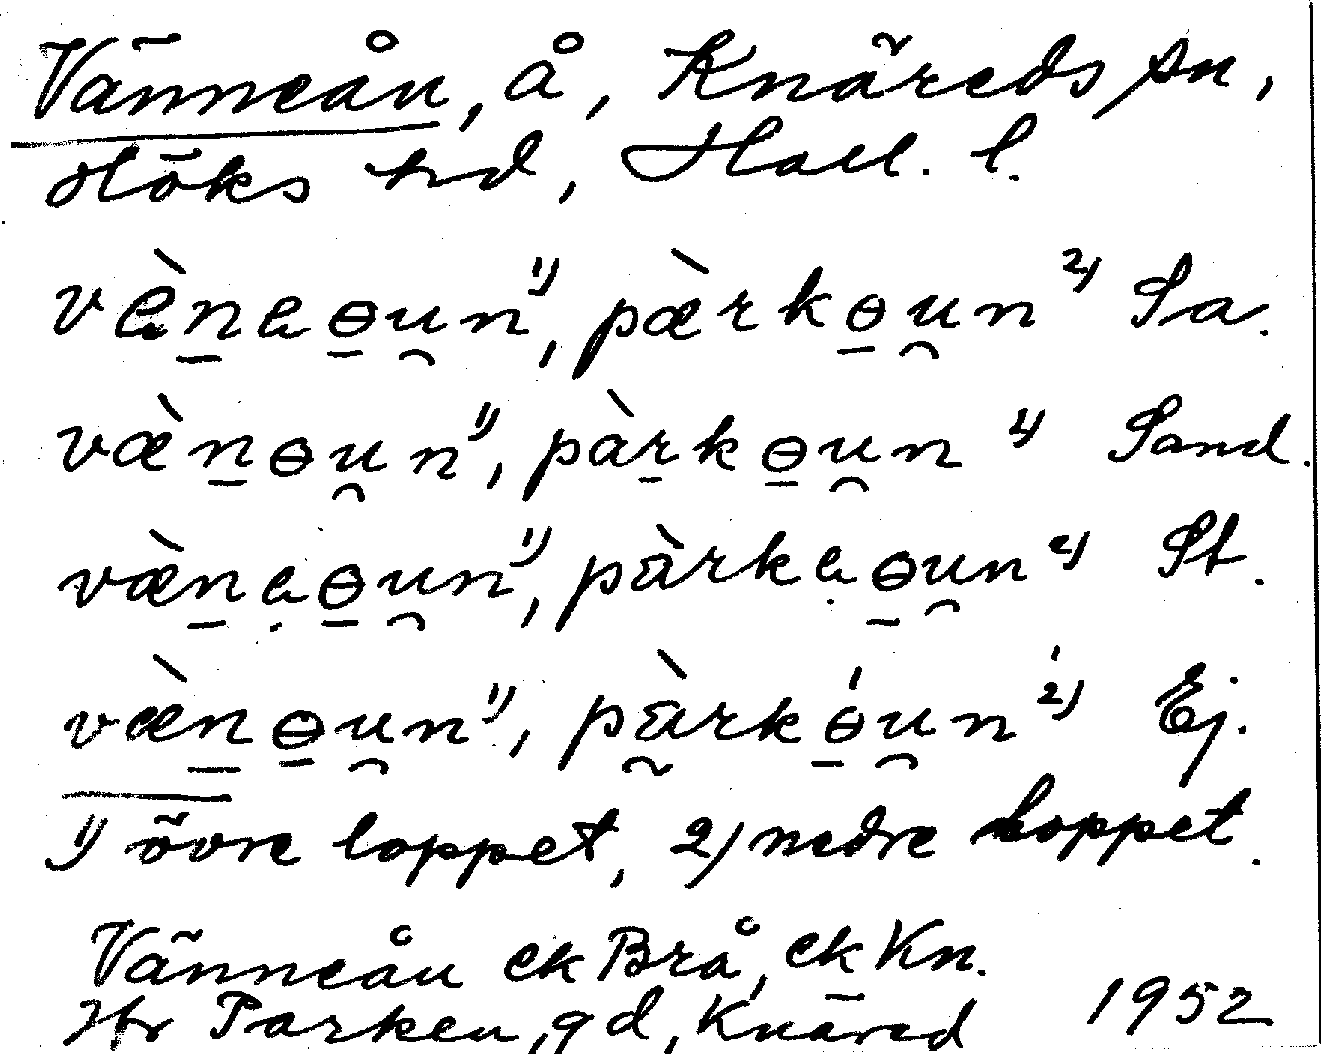 Vänneån, å, Knäreds sn,
Höks hd, Hall. l.
vèn̲ɐɵ̲u̯n¹⁾, pæ̀rkɵ̲u̯n²⁾ Sa.
væ̀n̲ɵu̯n¹⁾, pàr̲kɵ̲u̯n²⁾ Sand.
væ̀n̲ɐ̣ɵ̲u̯n¹⁾, pàrkɐ̣ɵ̲u̯n²⁾ St.
væ̀n̲ɵ̲u̯n¹⁾, pà̰rkɵ̲́u̯n²⁾ Ej.
1) övre loppet, 2) nedre loppet.
Vänneån ek Brå, ek Kn.
Hfr Parken, gd, Knäred 1952